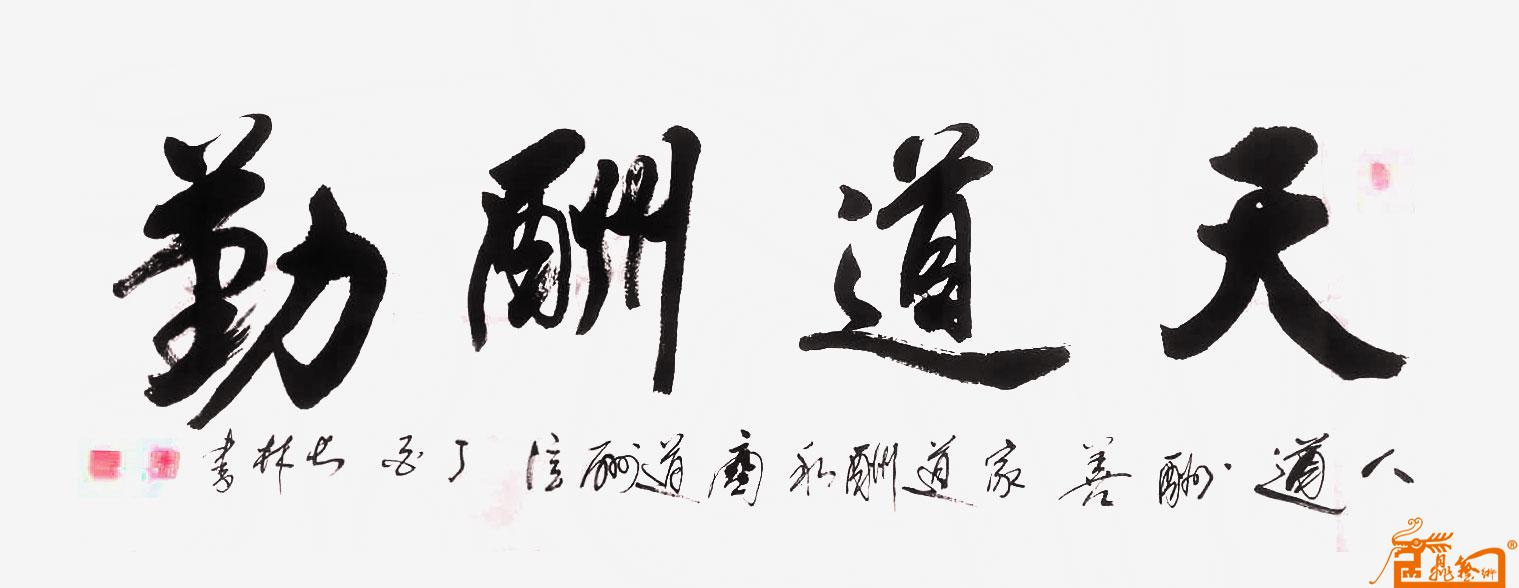 天道酬勤
人道酬善家道酬和商道酬信丁酉林書